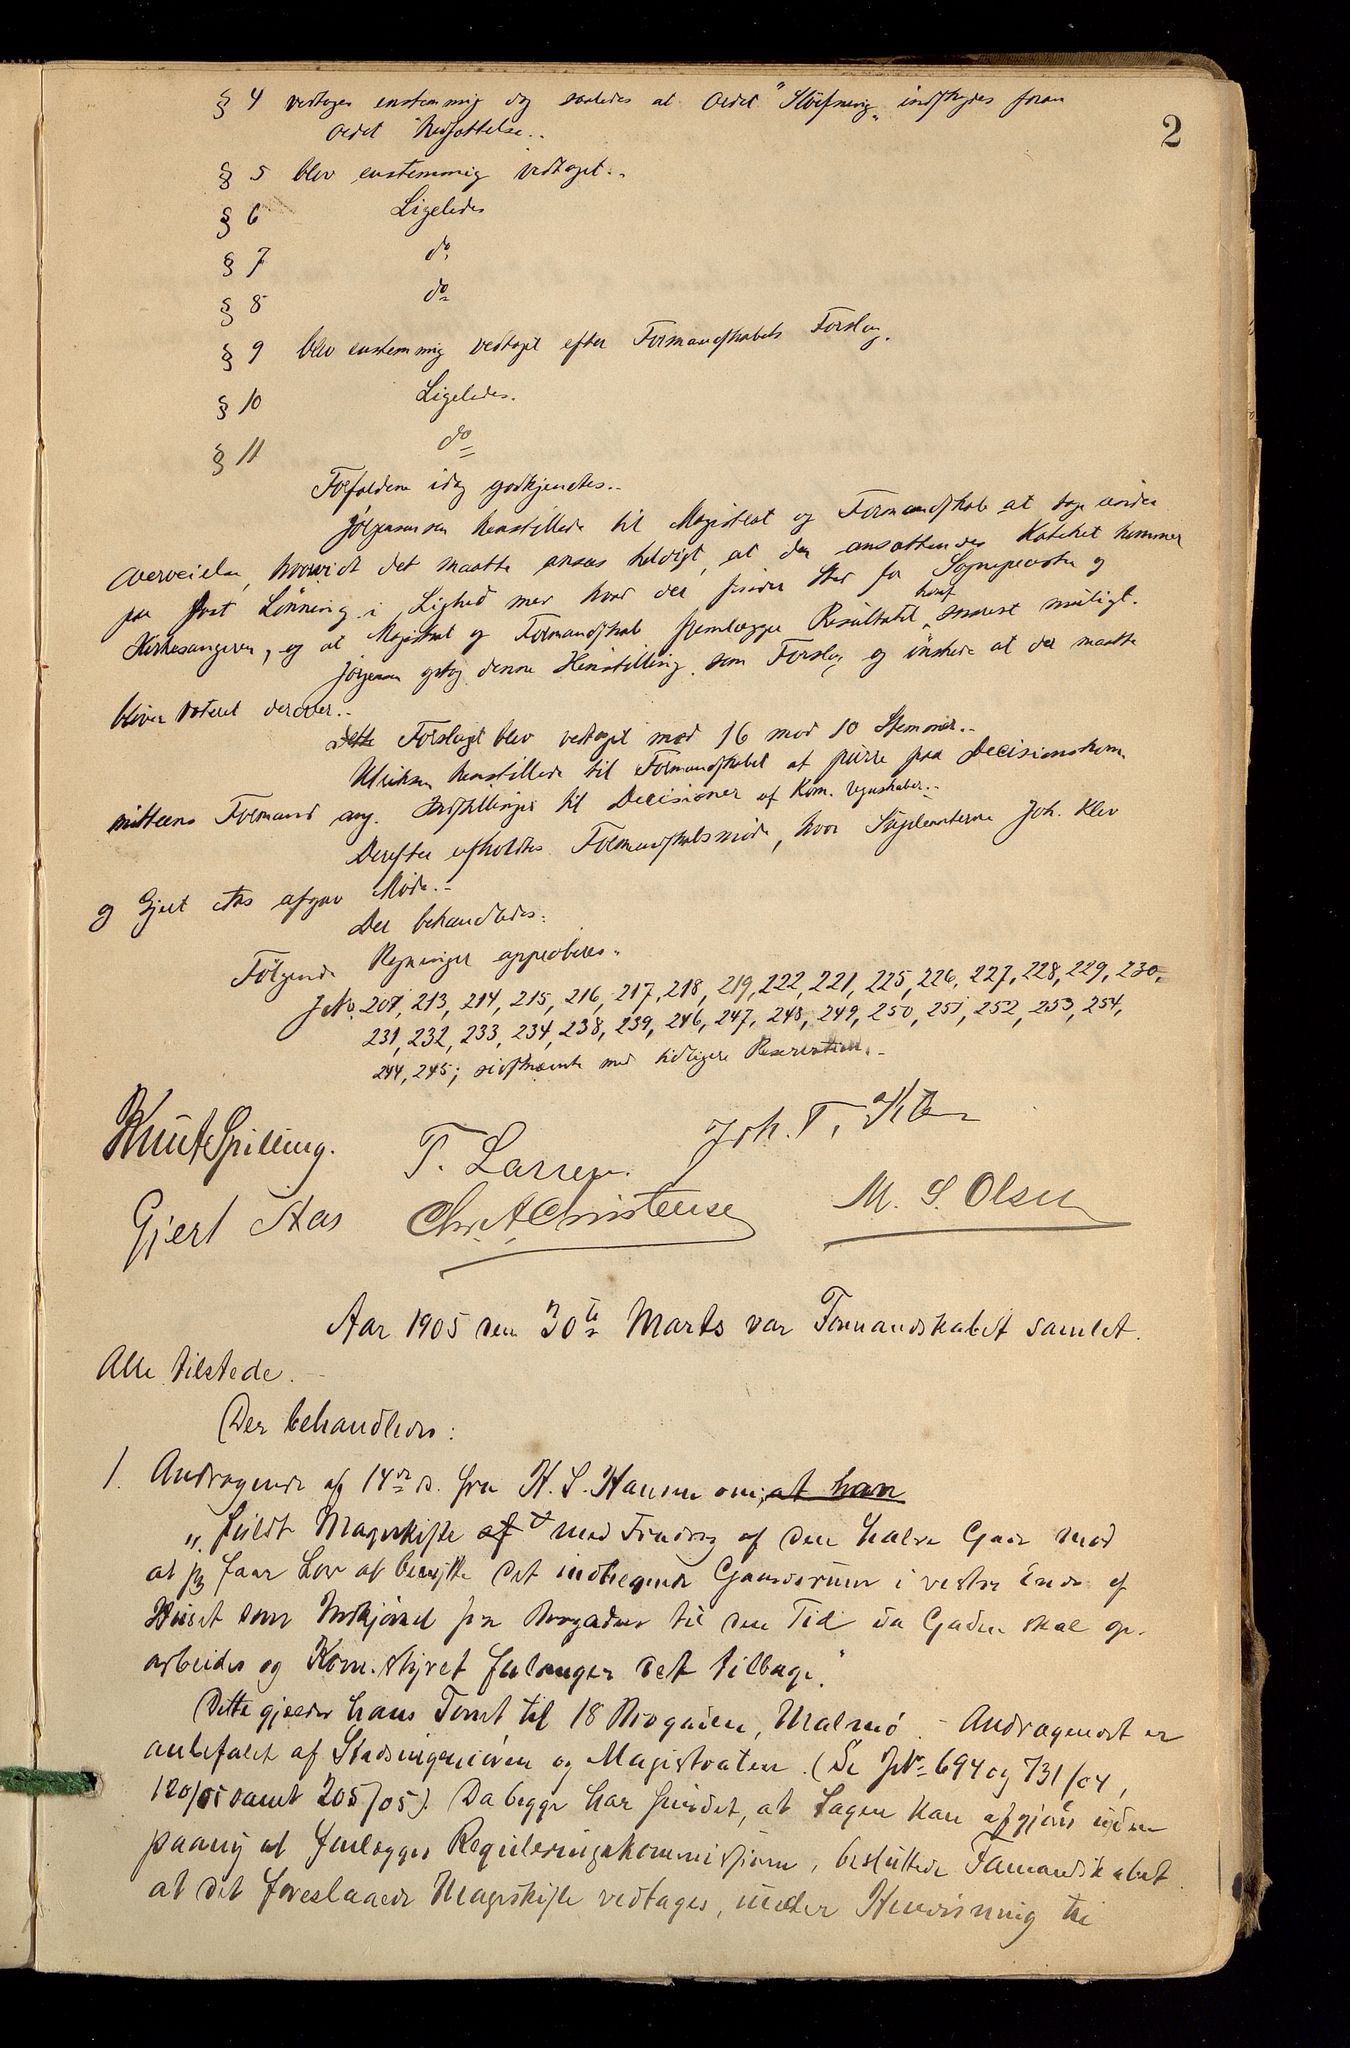 2
§ 4 vedtages enstemmig dog saaledes at Ordet "Sløifning" indskydes foran
Ordet Nedsættelse..
§ 5 blev enstemmig vedtaget..
§ 6 Ligeledes
§ 7 do
§ 8 do
§ 9 blev enstemmig vedtaget efter Formandskabets Forslag.
§ 10 Ligeledes.
§ 11 do
Forfaldene idag godkjendtes..
Jørgensen henstillede til Magistrat og Formandskab at tage under
Overveielse, hvorvidt det maatte ansees heldigt, at den ansættendes Kateket kommer
paa fast Lønning i Lighed med hvad der finder Sted for Sogneprest og
Kirkesangeren, og at Magistrat og Formandskab fremlægger Resultatet heraf snarest muligt.
Jørgensen optog denne Henstilling som Forslag og ønskede at der maatte
bliver voteret derover..
Dette Forslaget blev vedtaget med 16 mod 10 Stemmer..
Ulriksen henstillede til Formandskabet at purre paa Decisionskom
mitteens Formand ang. Indstillinger til Decisioner af Kom. regnskaber..
Derefter afholdtes Formandskabsmøde, hvor Suppleanterne Joh. Klev
og Gjert Aas afgav Møde..
Der behandledes:
Følgende Regninger approberes..
JNo. 201, 213, 214, 215, 216, 217, 218, 219, 222, 221, 225, 226, 227, 228, 229, 230,
231, 232, 233, 234, 238, 239, 246, 247, 248, 249, 250, 251, 252, 253, 254,
244, 245; sidstnævnte med tidligere Reservation..
Knut Spilling. T. Larsen. Joh. T. Klev
Gjert Aas Chr. A Christensen M. S. Olsen
Aar 1905 den 30te Marts var Formandskabet samlet.
Alle tilstede.
Der behandledes:
1. Andragende af 14de ds. fra H. S. Hansen om, at han
"fuldt Mageskifte af med Fradrag af den halve Gade mod
at jeg faar Lov at benytte det indhegnede Gaardsrum i vestre Ende af
Huset som Indkjørsel fra Brogaden til den Tid da Gaden skal op-
arbeides og Kom.styret forlanger det tilbage."
Dette gjælder hans Tomt til 18 Brogaden, Malmø. - Andragendet er
anbefalet af Stadsingeniøren og Magistraten. (Se JNr 694 og 731/04,
120/05 samt 205/05). Da begge har fundet, at Sagen kan afgjøres uden
paany at forelægges Reguleringskommisjonen, besluttede Formandskabet
at det foreslaaede Mageskifte vedtages, under Henvisning til